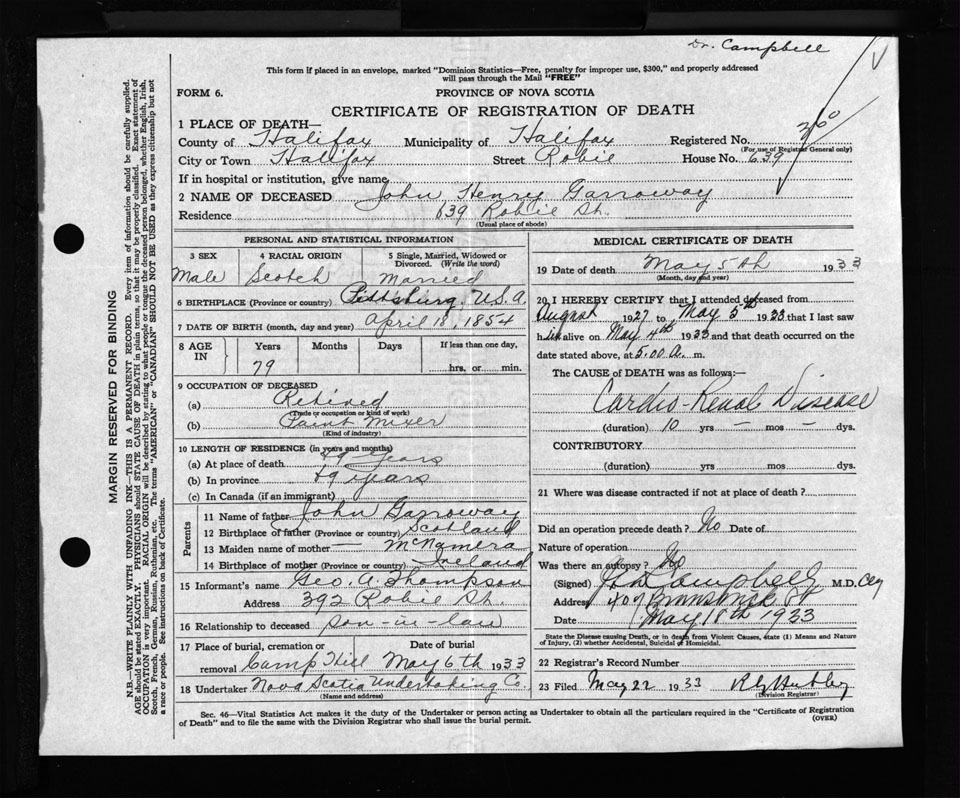 Dr. Campbell
This form if placed in an envelope, marked "Dominion Statistics—Free, penalty for improper use, $300," and properly addressed
will pass through the Mail "FREE"
FORM 6.
PROVINCE OF NOVA SCOTIA
CERTIFICATE OF REGISTRATION OF DEATH
1 PLACE OF DEATH—
County of Halifax Municipality of Halifax Registered No.
(For use of Registrar General only)
City or Town Halifax Street Robie House No. 639
If in hospital or institution, give name
2 NAME OF DECEASED John Henry Garroway
Residence 639 Robie St.
(Usual place of abode)
PERSONAL AND STATISTICAL INFORMATION
3 SEX 4 RACIAL ORIGIN 5 Single, Married, Widowed or
Divorced. (Write the word)
Male Scotch Married
6 BIRTHPLACE (Province or country) Pittsburg, U.S.A.
7 DATE OF BIRTH (month, day and year) April 18, 1854
8 AGE IN Years Months Days If less than one day,
79 hrs. or min.
9 OCCUPATION OF DECEASED
(a) Retired
(Trade or occupation or kind of work)
(b) Paint Mixer
(Kind of industry)
10 LENGTH OF RESIDENCE (in years and months)
(a) At place of death 49 years
(b) In province 49 years
(c) In Canada (if an immigrant)
Parents
11 Name of father John Garroway
12 Birthplace of father (Province or country) Scotland
13 Maiden name of mother — McNamera
14 Birthplace of mother (Province or country) Ireland
15 Informant's name Geo. A. Thompson
Address 392 Robie St.
16 Relationship to deceased son-in-law
17 Place of burial, cremation or Date of burial
removal Camp Hill May 6th 1933
18 Undertaker Nova Scotia Undertaking Co.
(Name and address)
MEDICAL CERTIFICATE OF DEATH
19 Date of death May 5th 1933
(Month, day and year)
20 I HEREBY CERTIFY that I attended deceased from
August 1927 to May 5th 1933 that I last saw
him alive on May 4th 1933 and that death occurred on the
date stated above, at 5.00 a. m.
The CAUSE of DEATH was as follows:—
Cardio-Renal Disease
(duration) 10 yrs – mos – dys.
CONTRIBUTORY
(duration) yrs mos dys.
21 Where was disease contracted if not at place of death?
Did an operation precede death? No Date of
Nature of operation
Was there an autopsy? No
(Signed) Campbell M.D.
Address 407 Brunswick St
Date May 18th 1933
State the Disease causing Death, or in death from Violent Causes, state (1) Means and Nature
of Injury, (2) whether Accidental, Suicidal or Homicidal.
22 Registrar's Record Number
23 Filed May 22 1933
(Division Registrar)
Sec. 46—Vital Statistics Act makes it the duty of the Undertaker or person acting as Undertaker to obtain all the particulars required in the "Certificate of Registration
of Death" and to file the same with the Division Registrar who shall issue the burial permit.
(OVER)
MARGIN RESERVED FOR BINDING
N.B.—WRITE PLAINLY WITH UNFADING INK—THIS IS A PERMANENT RECORD. Every item of information should be carefully supplied.
AGE should be stated EXACTLY. PHYSICIANS should STATE CAUSE OF DEATH in plain terms, so that it may be properly classified. Exact statement of
OCCUPATION is very important. RACIAL ORIGIN will be described by stating to what people or tongue the deceased person belonged, whether English, Irish,
Scotch, French, German, Russian, Ruthenian, etc. The terms "AMERICAN" or "CANADIAN" SHOULD NOT BE USED as they express citizenship but not
a race or people. See instructions on back of Certificate.